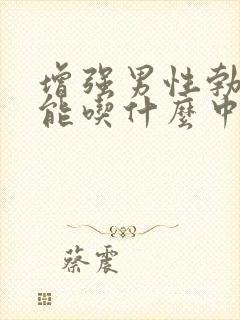 增强男性勃
能喫什麼中
蔡震